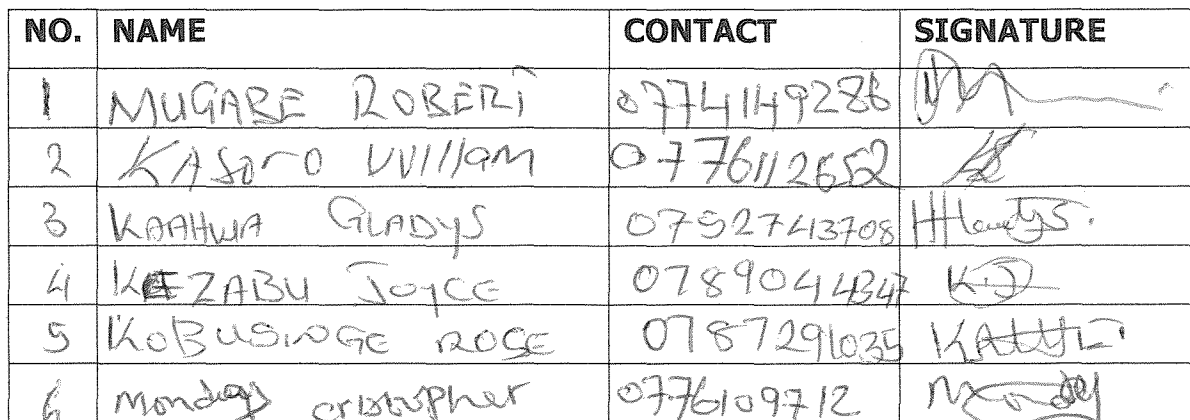 NO. NAME CONTACT SIGNATURE
1 MUGABE ROBERT 0774149286
2 KASORO William 0776112652
3 KAAHWA GLADYS 0752743708
4 KEZABU JOYCE 0789044347
5 KOBUSINGE ROSE 0787291035
6 Monday cristopher 0776109712